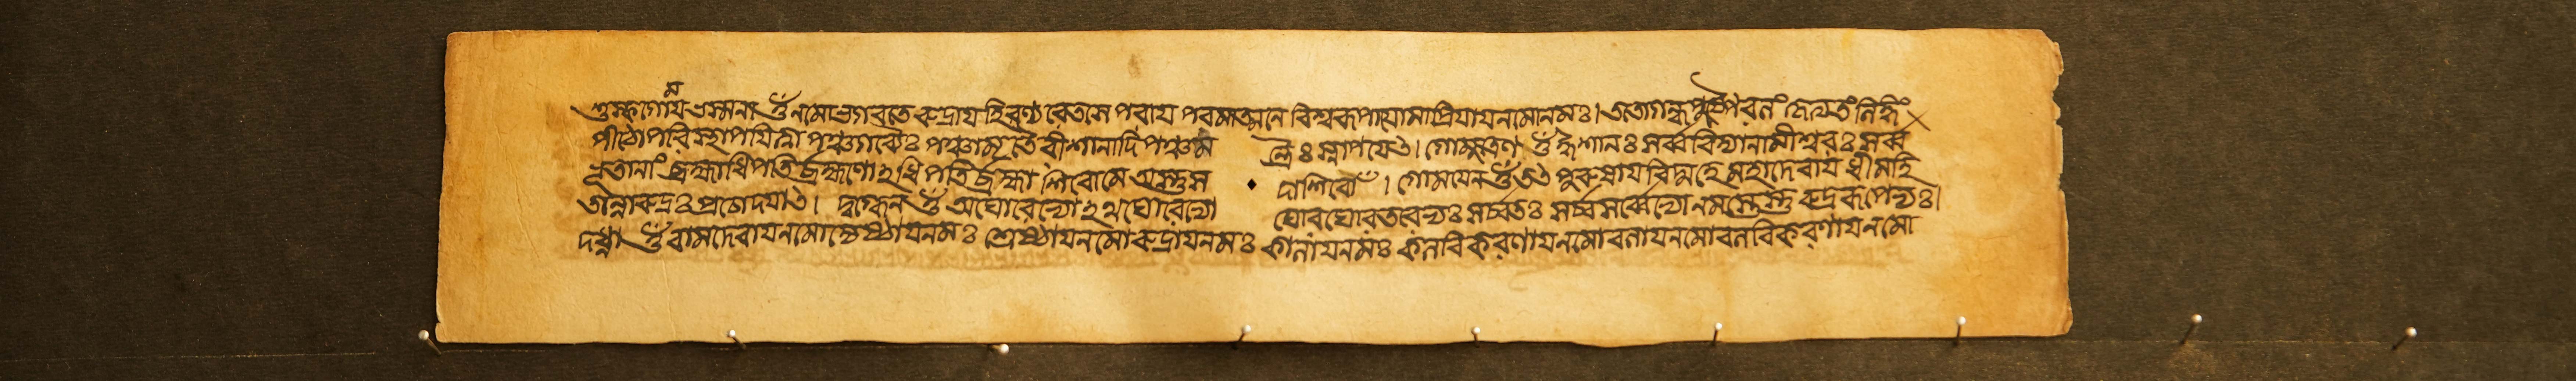 শুষ্কগোময় ভস্মনা ওঁ নমো ভগবতে রুদ্রায় হিরণ্যরেতসে পরায় পরমাত্মনে বিশ্বরূপায়োমাপ্রিয়ায় নমোনমঃ। ততোগন্ধপুষ্পৈ
পীঠোপরিস্থাপয়িত্বা পঞ্চগব্যৈঃ পঞ্চামৃতৈরীশানাদিপঞ্চম ন্ত্রৈঃ স্নাপয়েৎ। গোমূত্রেণ ওঁ ঈশানঃ সর্ব্ববিদ্যানামীশ্বরঃ সর্ব্ব
ভূতানাং ব্রহ্মাধিপতির্ব্রহ্মণোঽধিপতির্ব্রহ্মা শিবোমে অস্তুস দাশিবোঁ। গোময়েন ওঁ তৎপুরুষায় বিদ্মহে মহাদেবায় ধীমহি
তন্নোরুদ্রঃ প্রচোদয়াৎ। দুগ্ধেন ওঁ অঘোরেভ্যোঽথঘোরেভ্যো ঘোরঘোরতরেভ্যঃ সর্ব্বতঃ সর্ব্বসর্ব্বেভ্যোনমস্তেস্তু রুদ্ররূপেভ্যঃ।
দধ্না ওঁ বামদেবায়নমোজ্যেষ্ঠায়নমঃ শ্রেষ্ঠায়নমোরুদ্রায়নমঃ কালায়নমঃ কলবিকরণায়নমোবলায়নমোবলবিকরণায়নমো